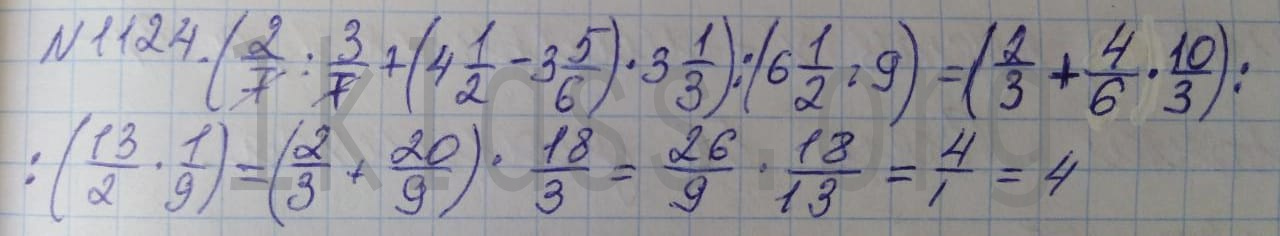 N1124. (2/7 : 3/7 + (4 1/2 - 3 5/6) · 3 1/3) : (6 1/2 : 9) = (2/3 + 4/6 · 10/3) :
: (13/2 · 1/9) = (2/3 + 20/9) · 18/3 = 26/9 · 18/13 = 4/1 = 4
1klass.org